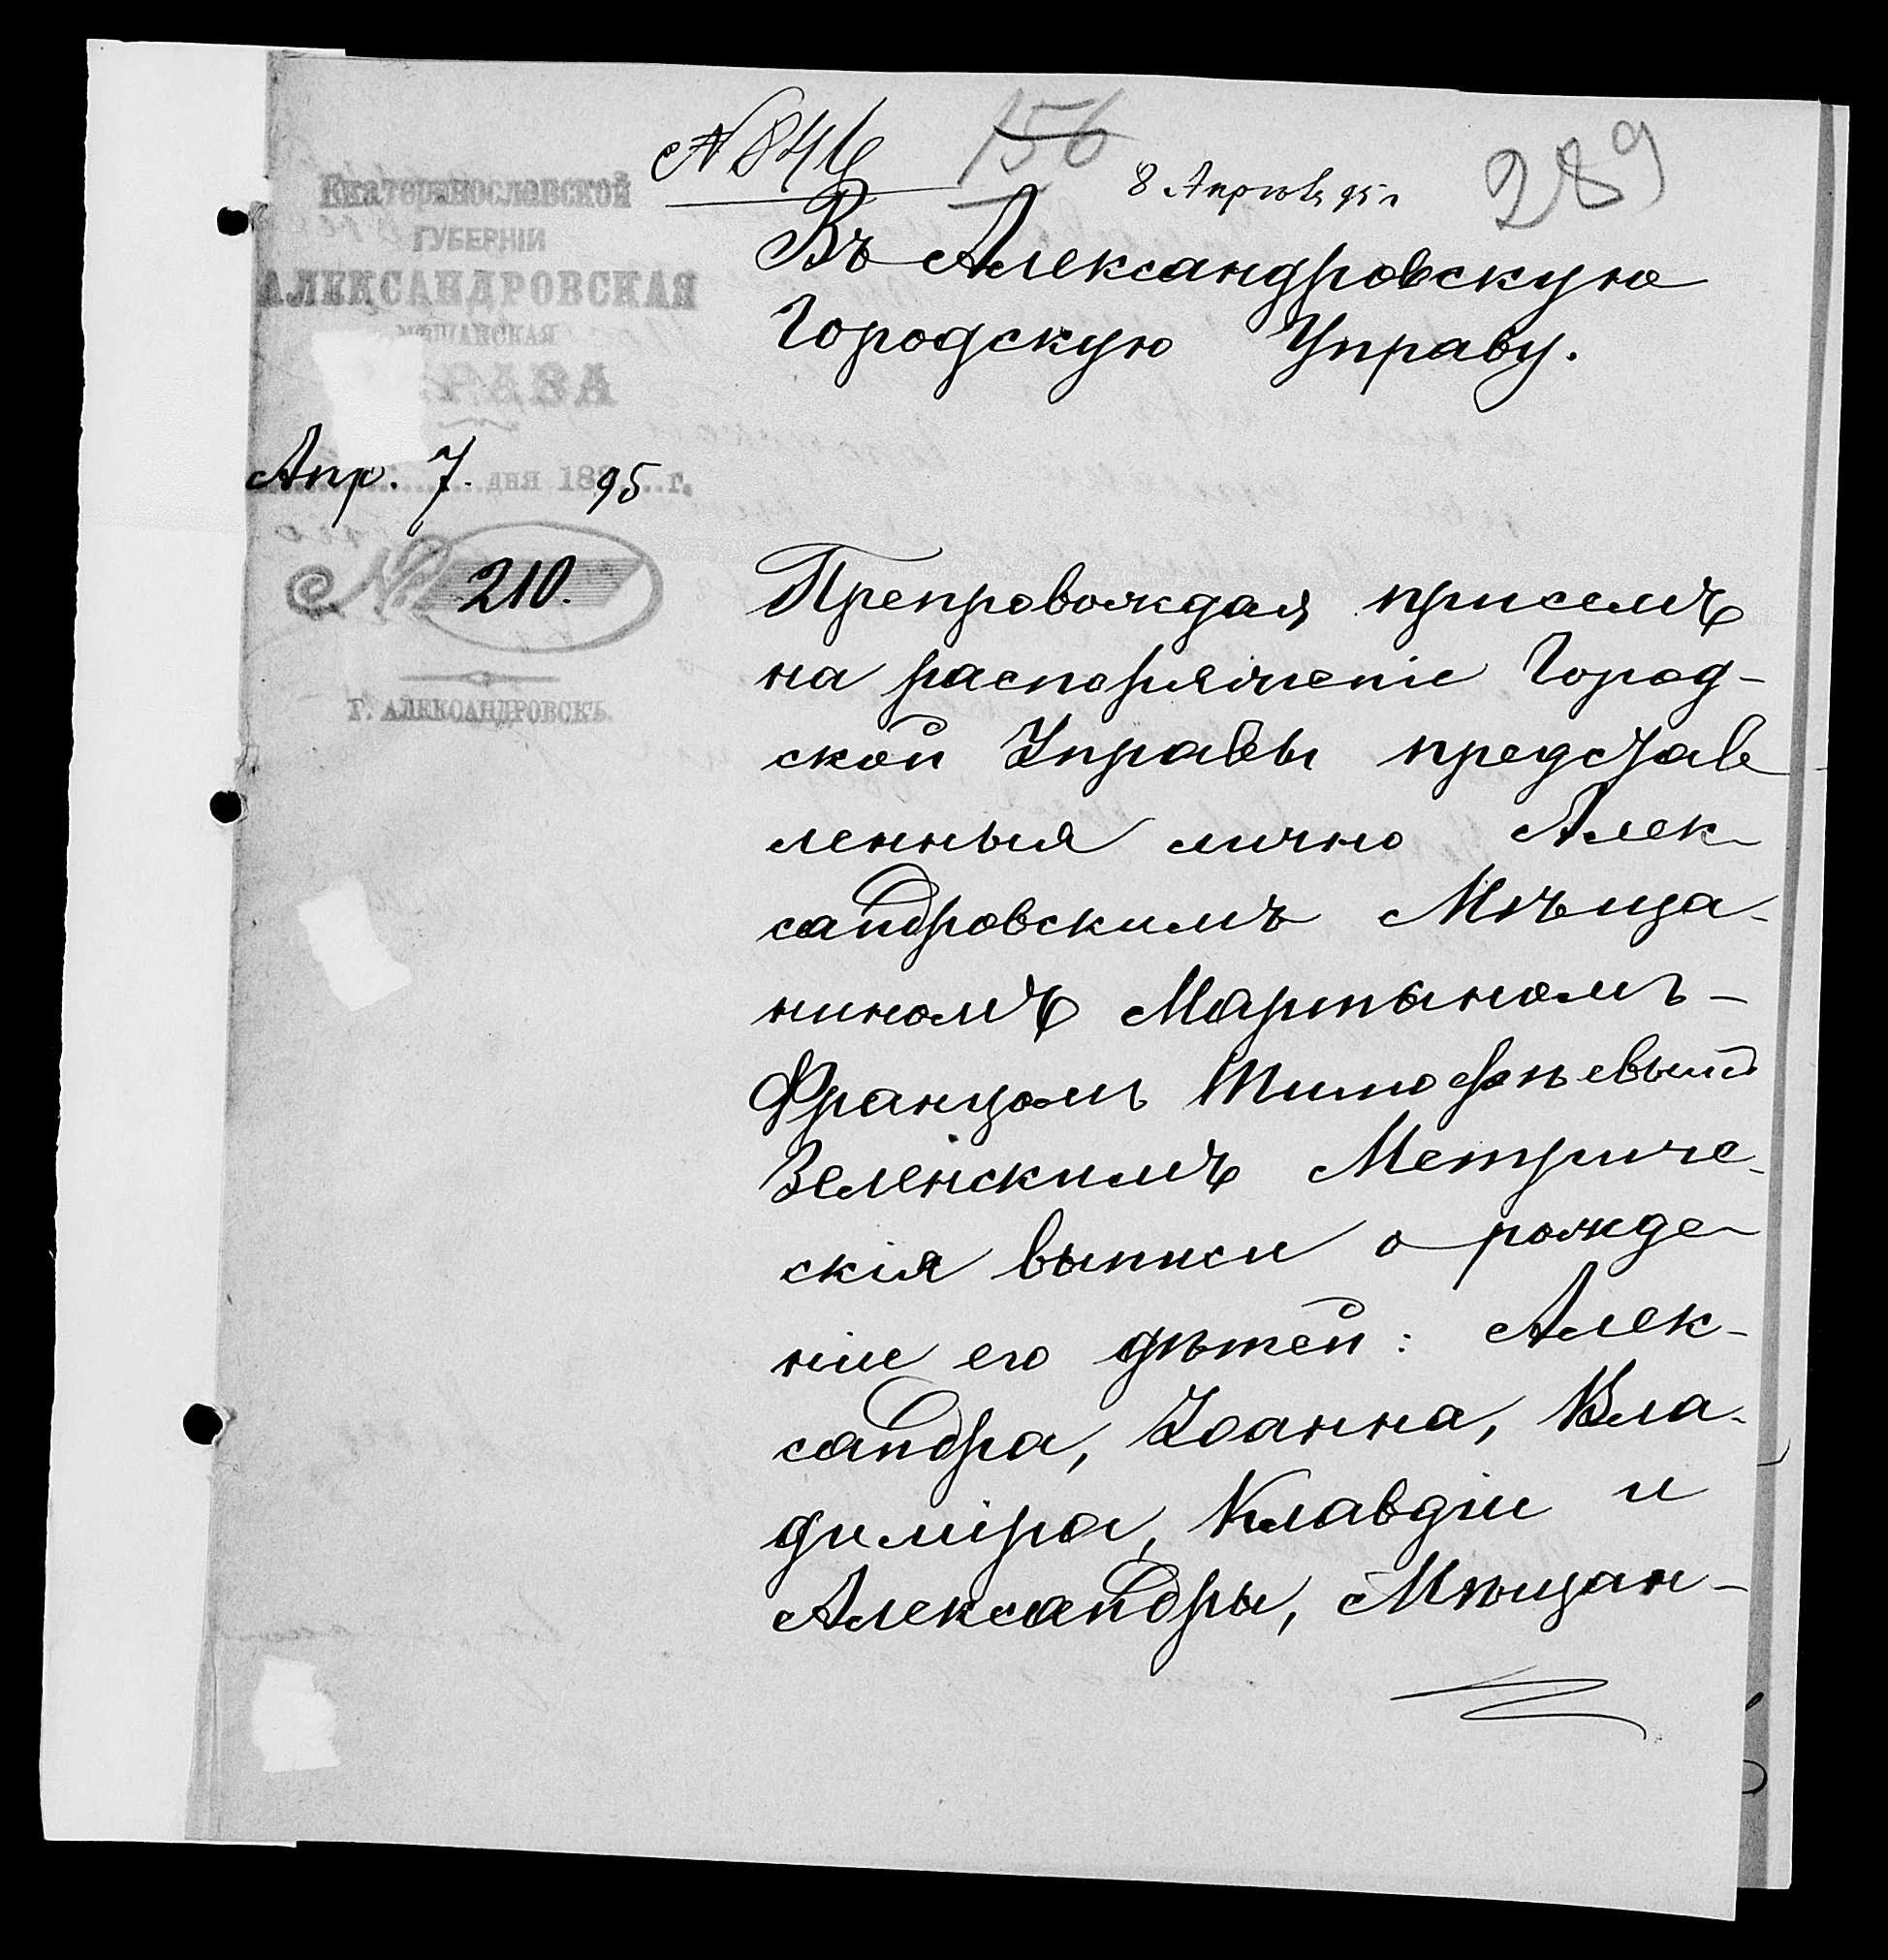 № 846
156
8 Апрѣля 95 г
289
Екатеринославской
ГУБЕРНІИ
АЛЕКСАНДРОВСКАЯ
МѢЩАНСКАЯ
УПРАВА
Апр. 7. дня 1895 г.
№ 210.
Г. АЛЕКСАНДРОВСКЪ.
Въ Александровскую
Городскую Управу.
Препровождая присемъ
на распоряженіе Город-
ской Управы представ
ленныя лично Алек-
сандровскимъ Мѣща-
ниномъ Мартыномъ-
Францомъ Тимофѣевымъ
Зеленскимъ Метриче-
скія выписи о рожде-
ніи его дѣтей: Алек-
сандра, Іоанна, Вла-
диміра, Клавдіи и
Александры, Мѣщан-